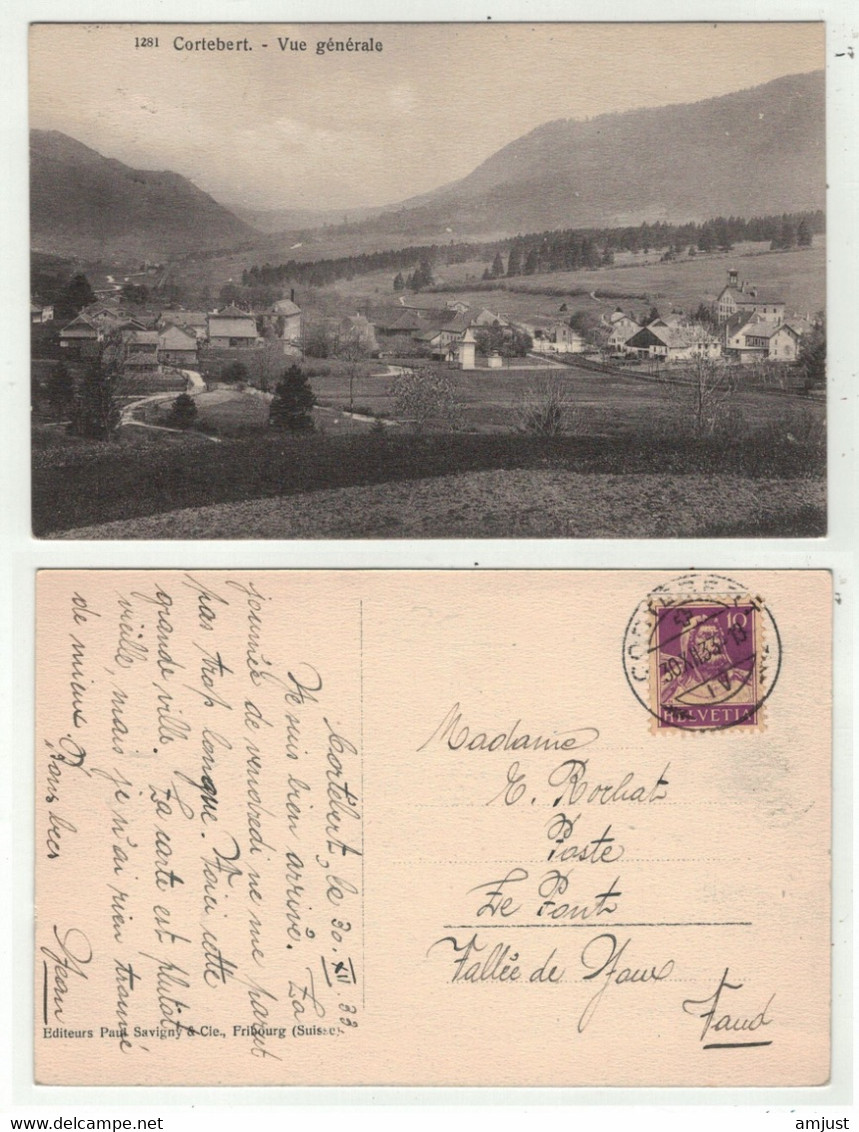 1281 Cortebert. - Vue générale
Cortébert, le 30. XII 33
Je suis bien arrivé. La
journée de vendredi ne me parait
pas trop longue. Voici cette
grande ville. La carte est plutôt
vieille, mais je n'ai rien trouvé
de mieux.
Bons becs
Jean
Editeurs Paul Savigny & Cie., Fribourg (Suisse).
30.XII.33.-13
10
HELVETIA
Madame
E. Rochat
Poste
Le Pont
Vallée de Joux
Vaud
amjust